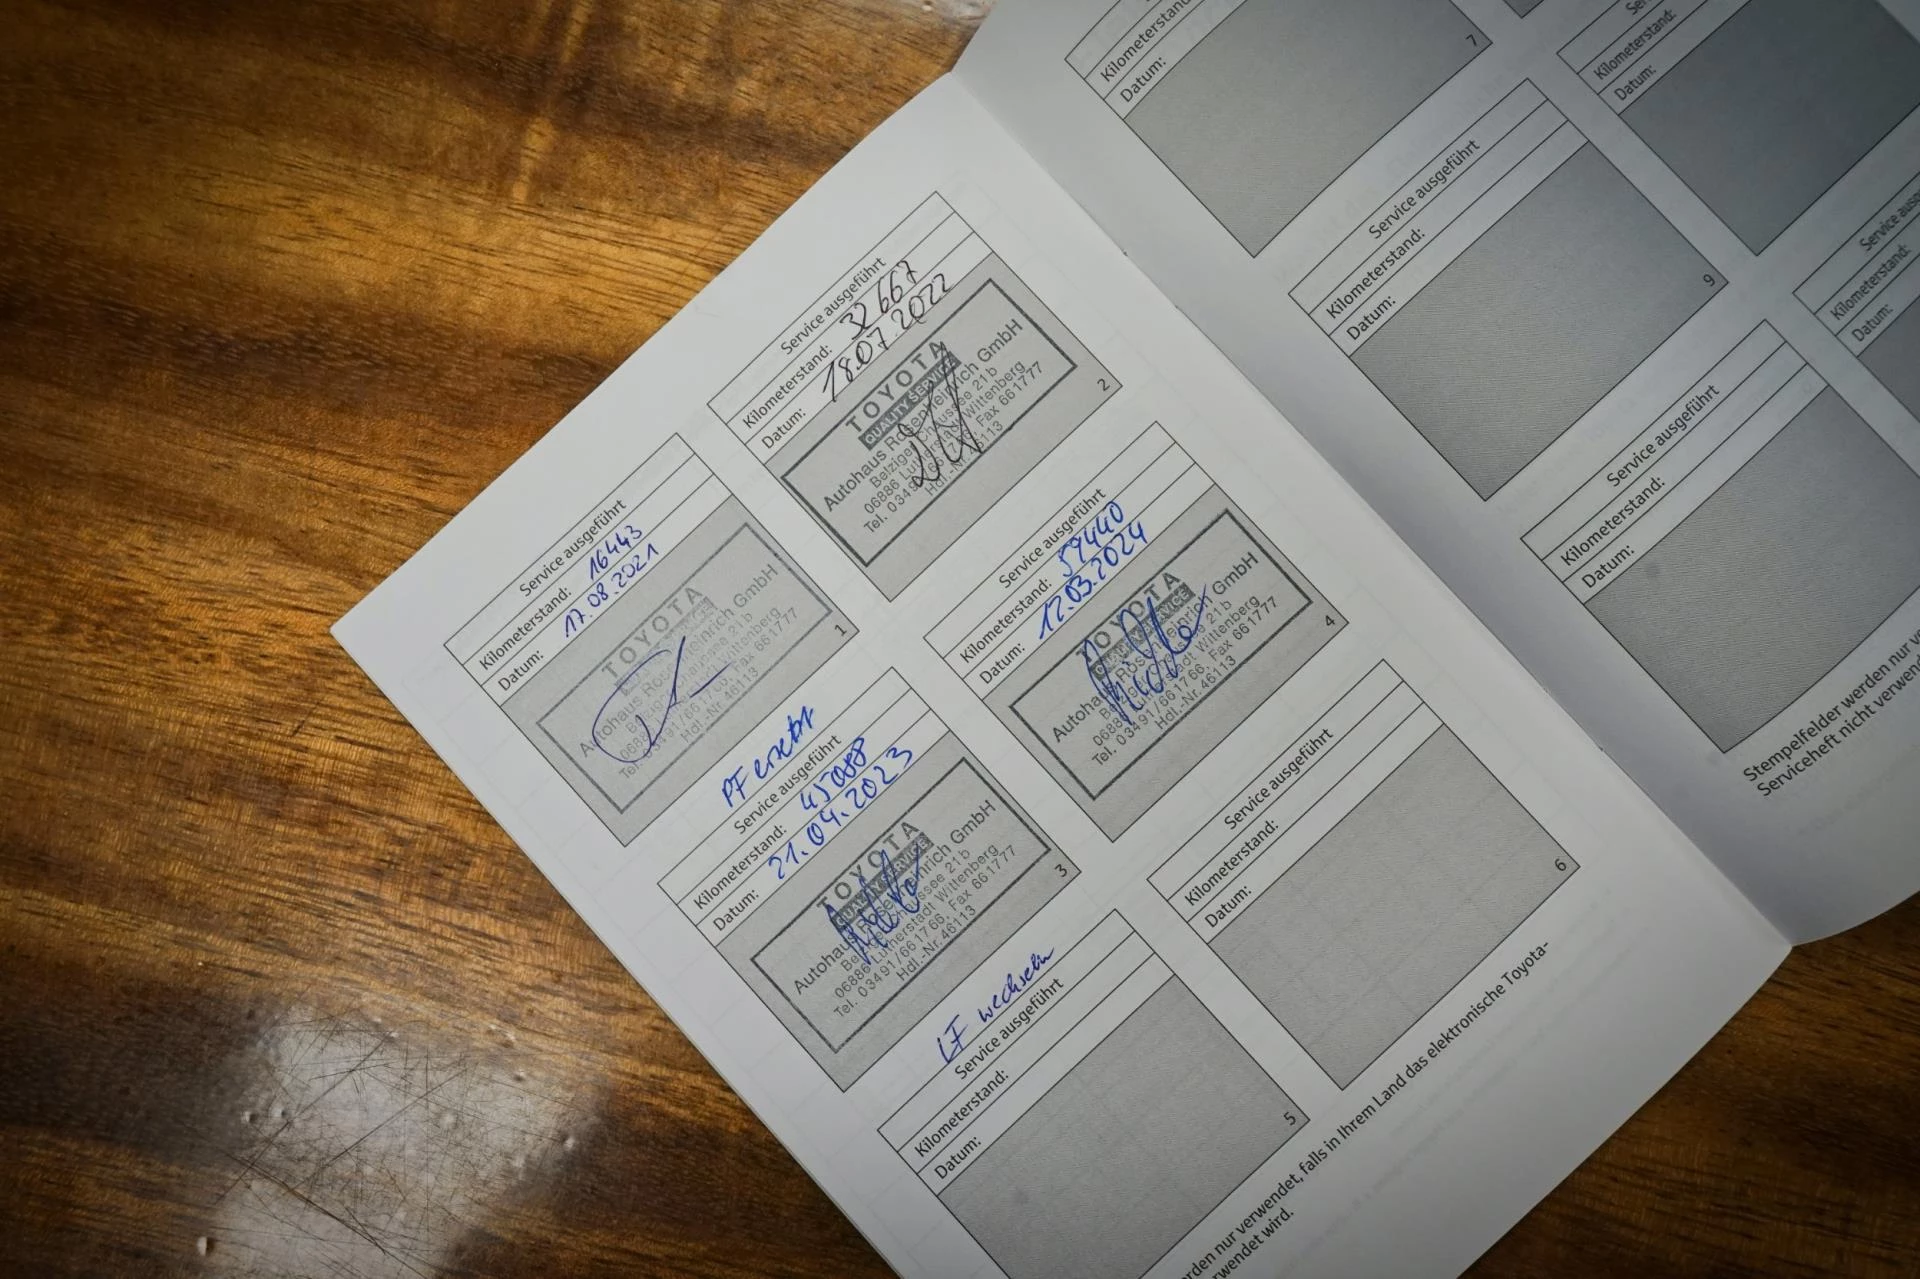 Service ausgeführt
Kilometerstand: 16443
Datum: 17.08.2021
TOYOTA
Autohaus Rosenheinrich GmbH
Belziger Chaussee 21b
06886 Lutherstadt Wittenberg
Tel. 03491/661766, Fax 661777
Hdl.-Nr. 46113
1
Service ausgeführt
Kilometerstand: 32667
Datum: 18.07.2022
TOYOTA
QUALITY SERVICE
Autohaus Rosenheinrich GmbH
Belziger Chaussee 21b
06886 Lutherstadt Wittenberg
Tel. 03491/661766, Fax 661777
Hdl.-Nr. 46113
2
PF ersetzt
Service ausgeführt
Kilometerstand: 45088
Datum: 21.04.2023
TOYOTA
QUALITY SERVICE
Autohaus Rosenheinrich GmbH
Belziger Chaussee 21b
06886 Lutherstadt Wittenberg
Tel. 03491/661766, Fax 661777
Hdl.-Nr. 46113
3
Service ausgeführt
Kilometerstand: 59440
Datum: 12.03.2024
TOYOTA
QUALITY SERVICE
Autohaus Rosenheinrich GmbH
Belziger Chaussee 21b
06886 Lutherstadt Wittenberg
Tel. 03491/661766, Fax 661777
Hdl.-Nr. 46113
4
LF wechseln
Service ausgeführt
Kilometerstand:
Datum:
5
Service ausgeführt
Kilometerstand:
Datum:
6
rden nur verwendet, falls in Ihrem Land das elektronische Toyota-
rwendet wird.
Kilometerstand:
Datum:
7
Kilometerstand:
Datum:
Service ausgeführt
Kilometerstand:
Datum:
9
Service ausge
Kilometerstand:
Datum:
Service ausgeführt
Kilometerstand:
Datum:
Stempelfelder werden nur v
Serviceheft nicht verwend